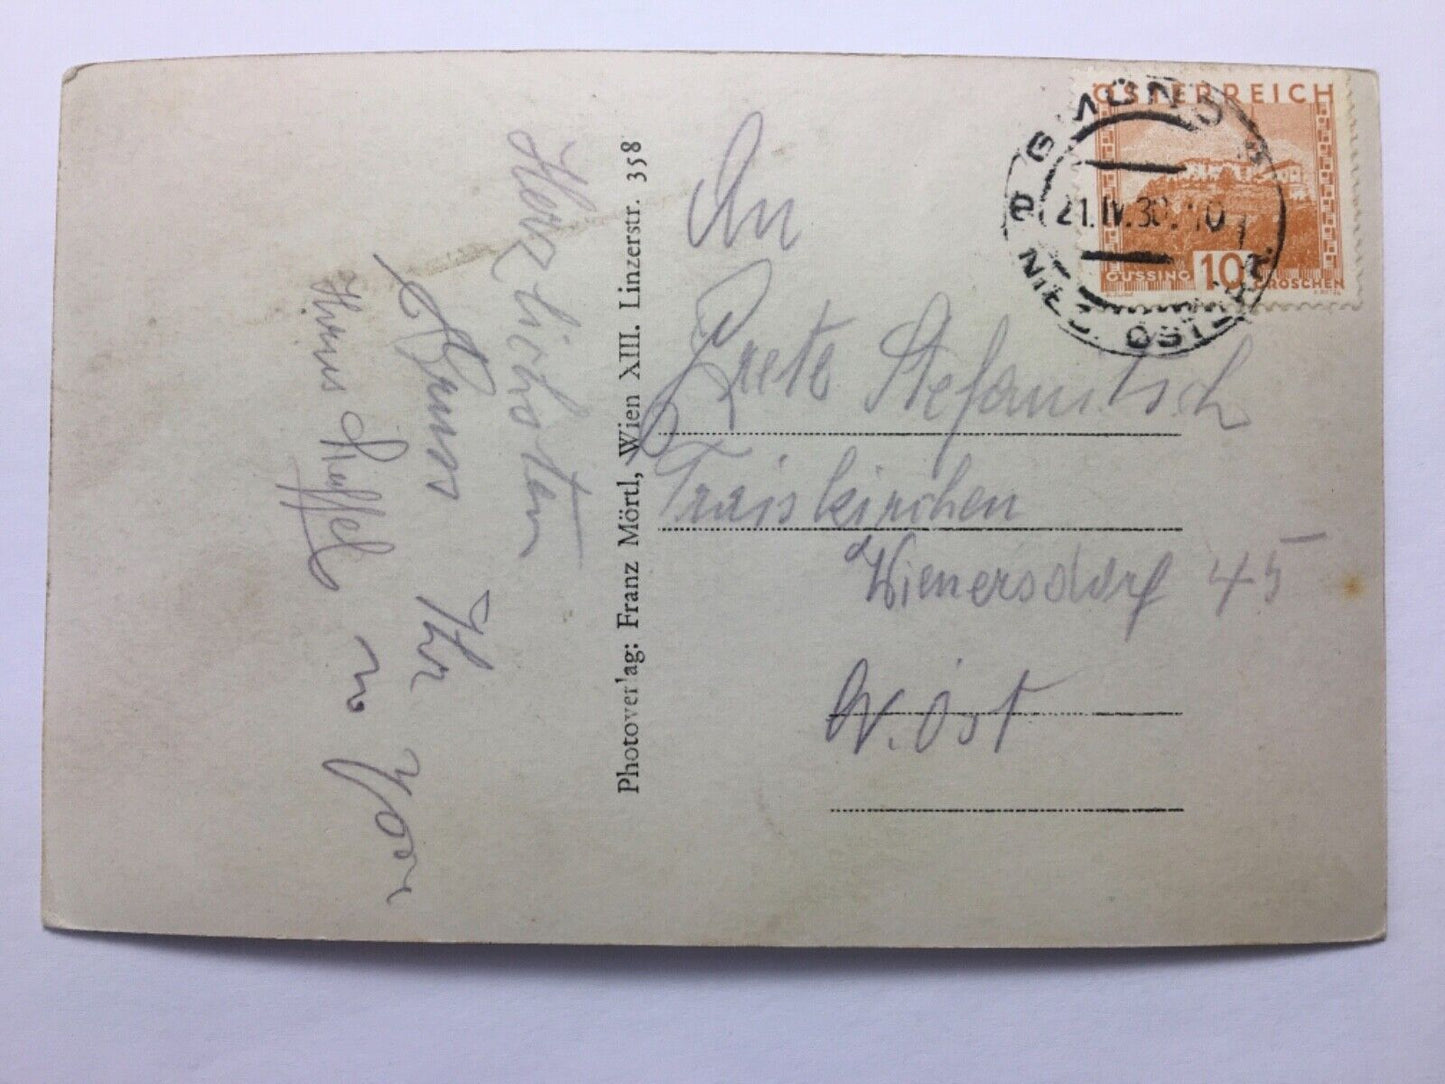 ÖSTERREICH
GÜSSING 10 GROSCHEN
GMÜND
21.IV.30.
NIED. ÖSTERR.
An
Grete Stefanitsch
Traiskirchen
Wienersdorf 45
N. Öst
Photoverlag: Franz Mörtl, Wien XIII. Linzerstr. 358
Herzlichsten
Gruss Ihr
Hans